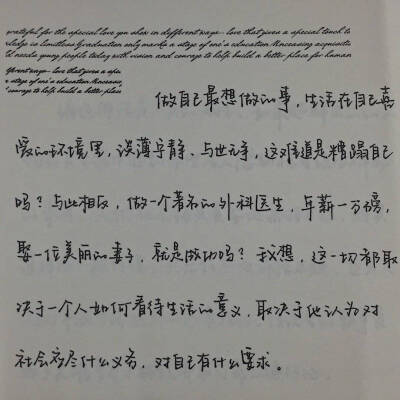 grateful for the special love you show in different ways- love that gives a special touch to
ledge is limitless Graduation only marks a stage of one's education Unceasing
d needs young people today with vision and courage to help build a better place for human
fferent ways- love that gives a spe
a stage of one's education
courage to help build a better place
做自己最想做的事,生活在自己喜
爱的环境里,淡薄宁静、与世无争,这难道是糟蹋自己
吗?与此相反,做一个著名的外科医生,年薪一万磅,
娶一位美丽的妻子,就是成功吗?我想,这一切都取
决于一个人如何看待生活的意义,取决于他认为对
社会应尽什么义务,对自己有什么要求。